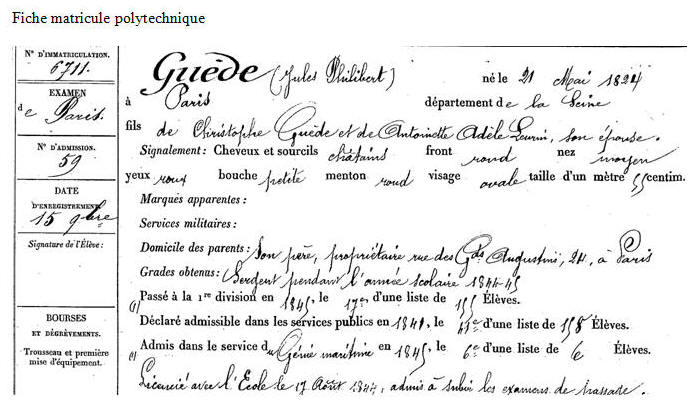 Fiche matricule polytechnique
N° D'IMMATRICULATION.
6711.
EXAMEN
de Paris.
N° D'ADMISSION.
59
DATE
D'ENREGISTREMENT
15 9bre
Signature de l'Élève :
BOURSES
ET DÉGRÈVEMENTS.
Trousseau et première
mise d'équipement.
Guède (Jules Philibert) né le 21 Mai 1824
à Paris département de la Seine
fils de Christophe Guède et de Antoinette Adèle son épouse.
Signalement : Cheveux et sourcils châtains front rond nez moyen
yeux roux bouche petite menton rond visage ovale taille d'un mètre centim.
Marques apparentes :
Services militaires :
Domicile des parents : Son père, propriétaire rue des Gds Augustins, 24, à Paris
Grades obtenus : Sergent pendant l'année scolaire 1844-45
Passé à la 1re division en 1845, le 17e d'une liste de Élèves.
Déclaré admissible dans les services publics en le d'une liste de 158 Élèves.
Admis dans le service du Génie maritime en 1845, le 6e d'une liste de 6 Élèves.
Licencié avec l'École le 17 Août 1844, admis à subir les examens de passage.